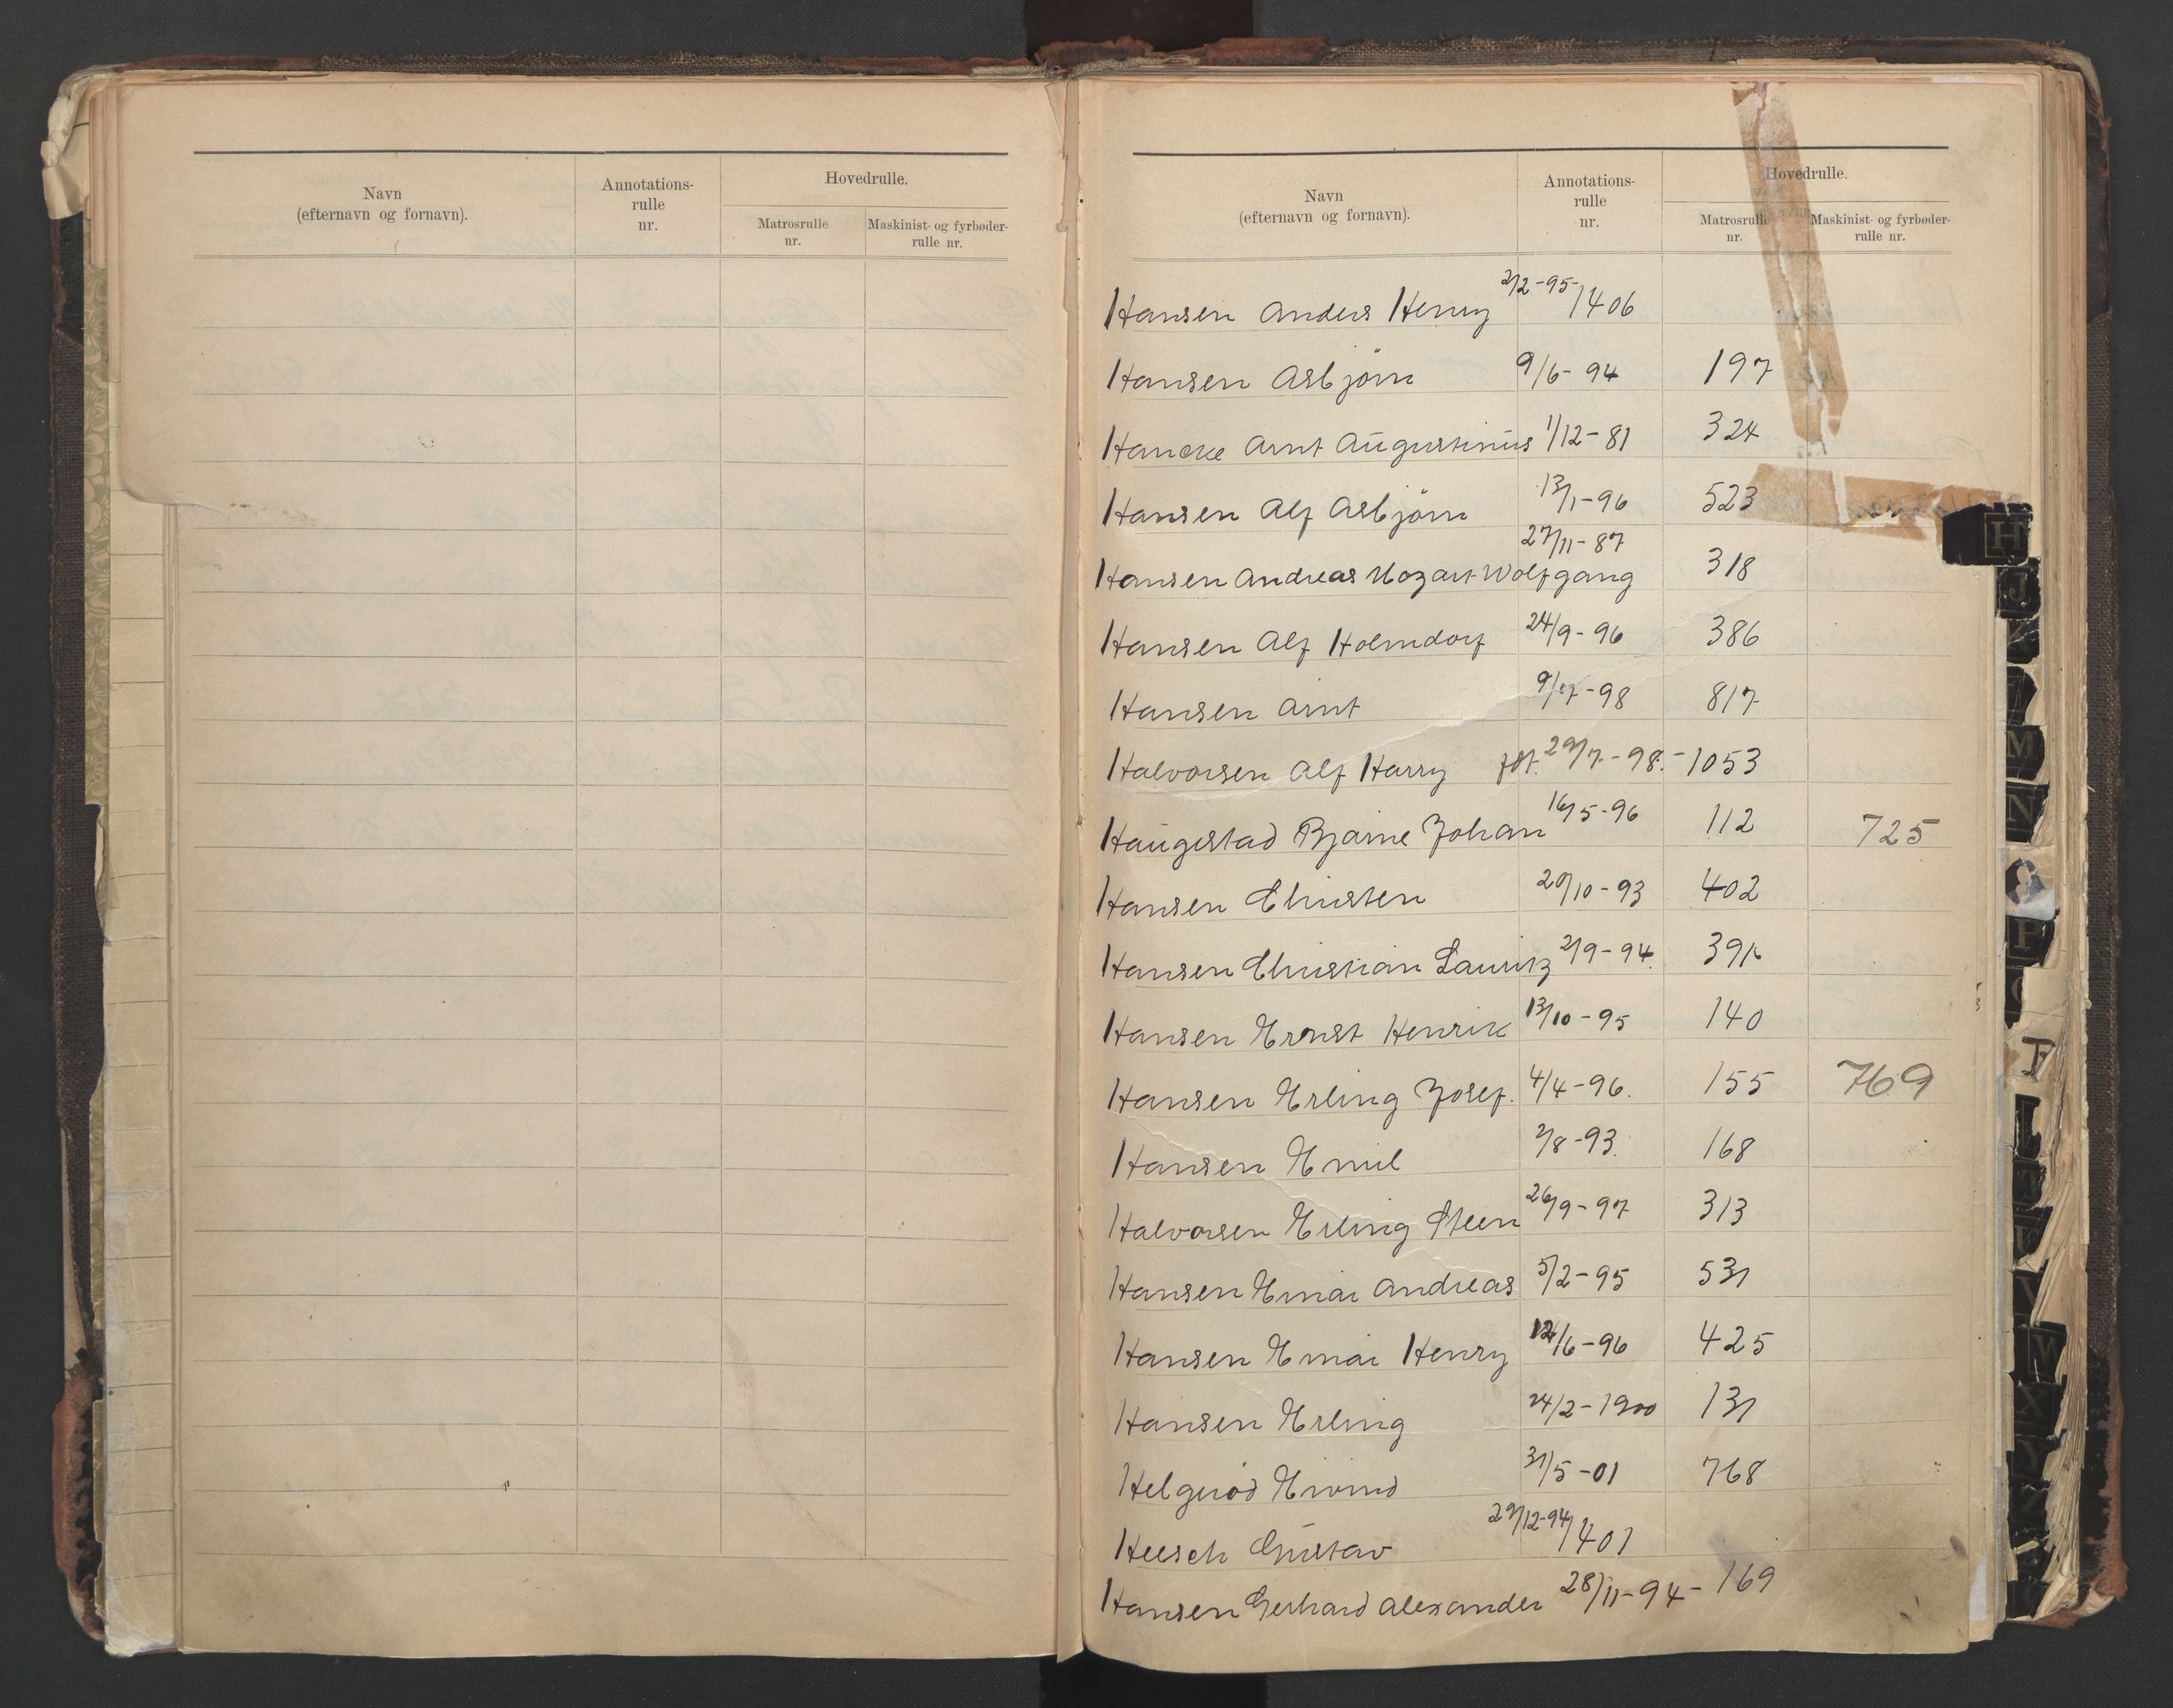 Navn
(efternavn og fornavn).
Annotations-
rulle
nr.
Hovedrulle.
Matrosrulle
nr.
Maskinist- og fyrbøder-
rulle nr.
Navn
(efternavn og fornavn).
Annotations-
rulle
nr.
Hovedrulle.
Matrosrulle
nr.
Maskinist- og fyrbøder-
rulle nr.
Hansen Anders Henry 2/2-95 1406
Hansen Asbjörn 9/6-94 197
Hancke Arnt Augustinus 1/12-81 324
Hansen Alf Asbjörn 13/1-96 523
Hansen Andreas Mozart Wolfgang 27/11-87 318
Hansen Alf Holmdorf 24/9-96 386
Hansen Arnt 98 817
Halvorsen Alf Harry 29/7-98.-1053
Haugestad Bjarne Johan 16/5-96 112 725
Hansen Christen 20/10-93 402
Hansen Christian Lauritz 2/9-94
Hansen Ernst Henrik 13/10-95 140
Hansen Erling Josef. 4/4-96. 155 769
Hansen Emil 2/8-93. 168
Halvorsen Erling Steen 26/9-97 313
Hansen Einar Andreas 5/2-95 531
Hansen Einar Henry 12/6-96 425
Hansen Erling 24/2-1900 131
Helgeröd Eivind 31/5-01 768
Heesch Gustav 29/12-94 1401
Hansen Gerhard Alexander 28/11-94-169
H
J
M
N
P
T
W
X
Y